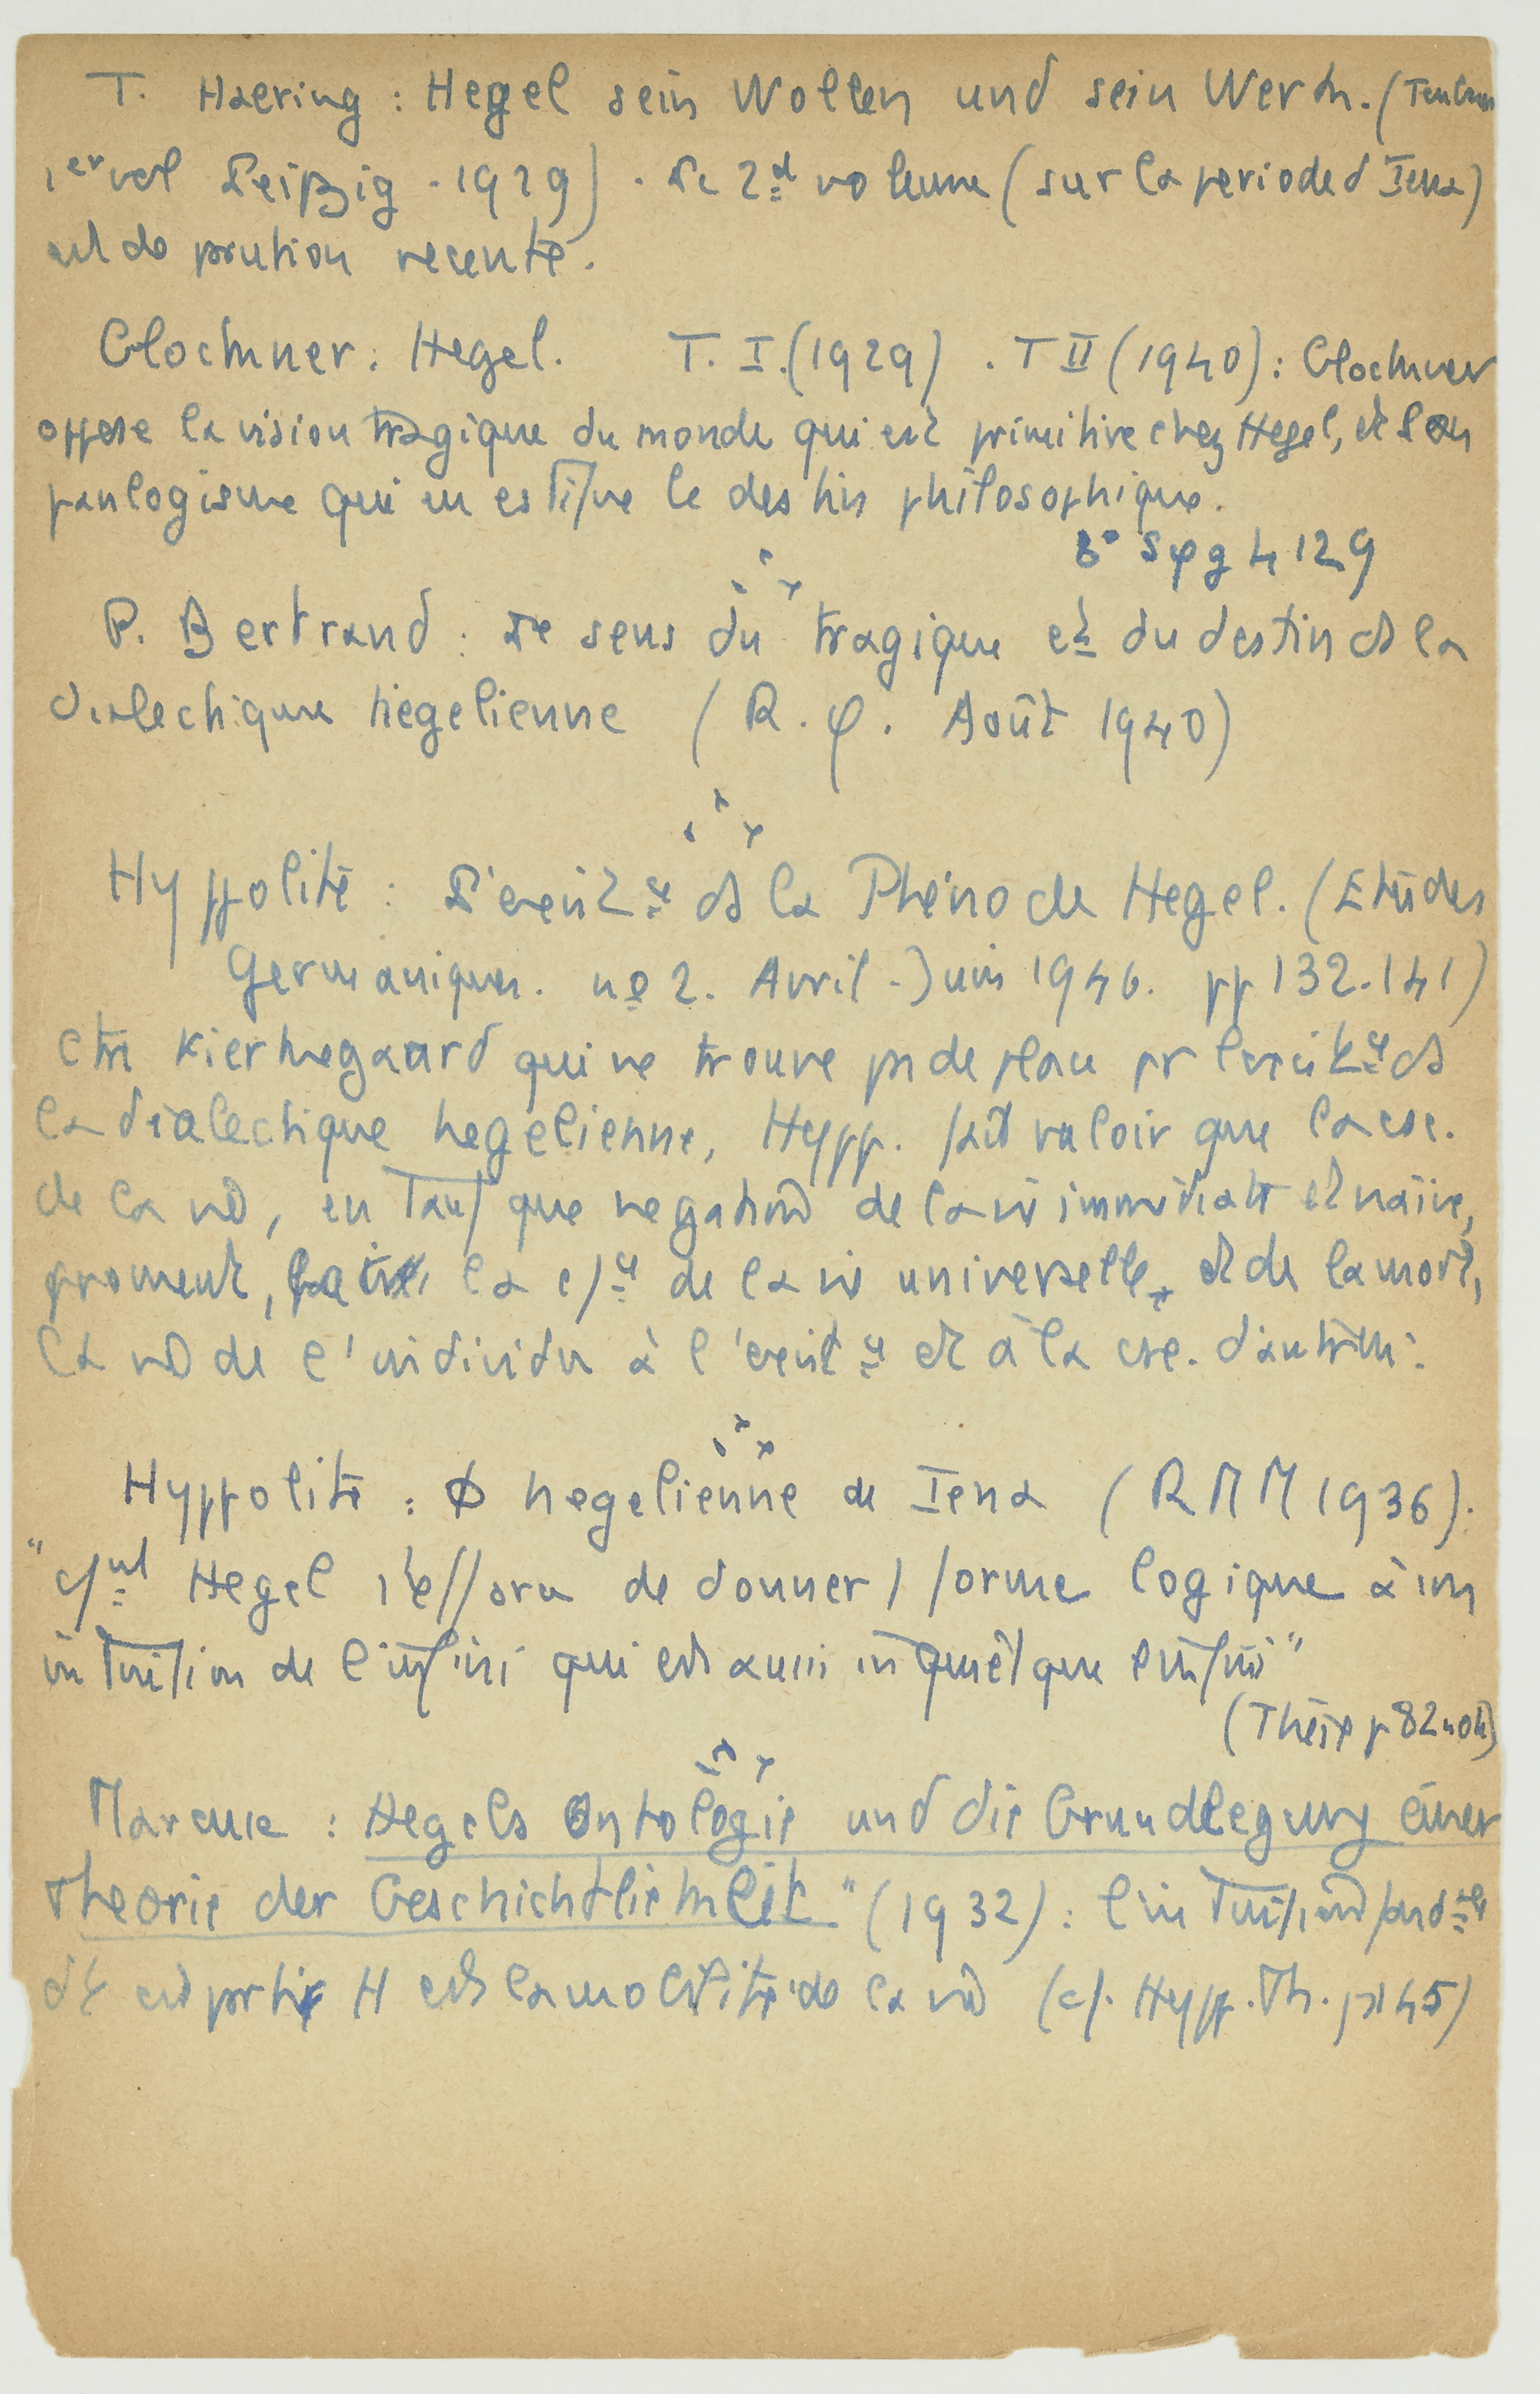 T. Haering : Hegel sein Wollen und sein Werk. (Teubner
1er vol Leipzig . 1929) . Le 2d volume (sur la periode d Iena)
est de parution recente.
Glockner : Hegel. T. I. (1929) . T II (1940) : Glockner
oppose la vision tragique du monde qui est primitive chez Hegel, et son
panlogisme qui en est le destin philosophique.
8° Spg 4129
P. Bertrand : Le sens du tragique et du destin ds la
dialectique hegelienne (R. φ. Août 1940)
Hyppolite : L'exist ds la Phéno de Hegel. (Etudes
Germaniques. no 2. Avril - Juin 1946. pp 132.141)
Ctr Kierkegaard qui ne trouve ps de place pr l'exist ds
la dialectique hegelienne, Hypp. fait valoir que la csc.
de la vie, en tant que negation de la vie immédiate et naïve,
promeut, la de la vie universelle, et de la mort,
la vie de l'individu à l'exist et à la csc. d'autrui.
Hyppolite : φ hegelienne de Iena (R M M 1936).
" Hegel s'efforce de donner 1 forme logique à un
intuition de l'infini qui est aussi inquiet que l'infini"
(Thèse p 82 note)
Marcuse : Hegels Ontologie und die Grundlegung einer
Theorie der Geschichtlichkeit " (1932) : l'intuition fond
dt est parti H est la mobilité de la vie (cf. Hypp. Th. p 145)